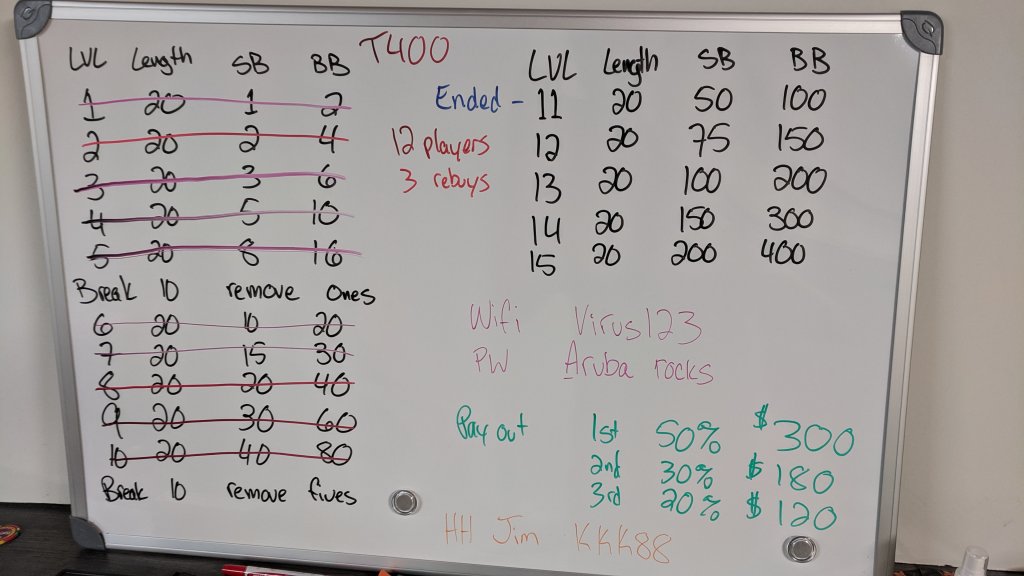 T400
LVL Length SB BB
1 20 1 2
2 20 2 4
3 20 3 6
4 20 5 10
5 20 8 16
Break 10 remove ones
6 20 10 20
7 20 15 30
8 20 20 40
9 20 30 60
10 20 40 80
Break 10 remove fives
LVL Length SB BB
Ended - 11 20 50 100
12 players 12 20 75 150
3 rebuys 13 20 100 200
14 20 150 300
15 20 200 400
Wifi Virus123
PW Aruba rocks
Pay out 1st 50% $300
2nd 30% $180
3rd 20% $120
HH Jim KKK88